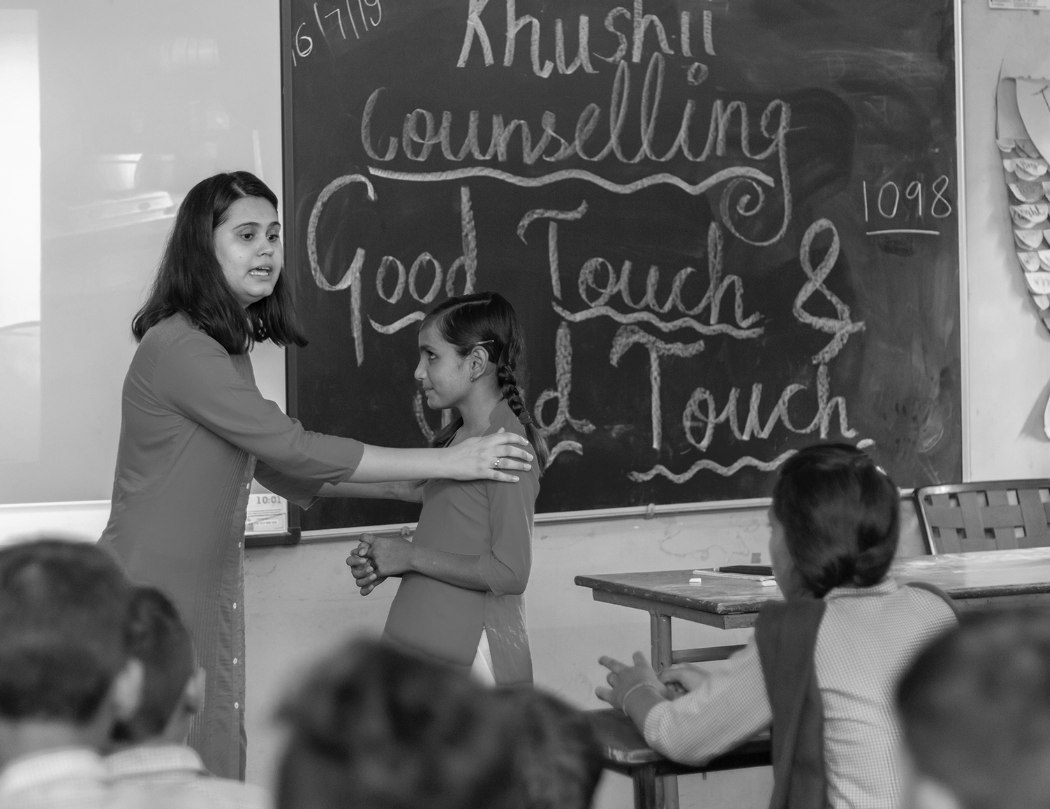 16/7/19
Khushii
Counselling
1098
Good Touch &
Touch
10:01